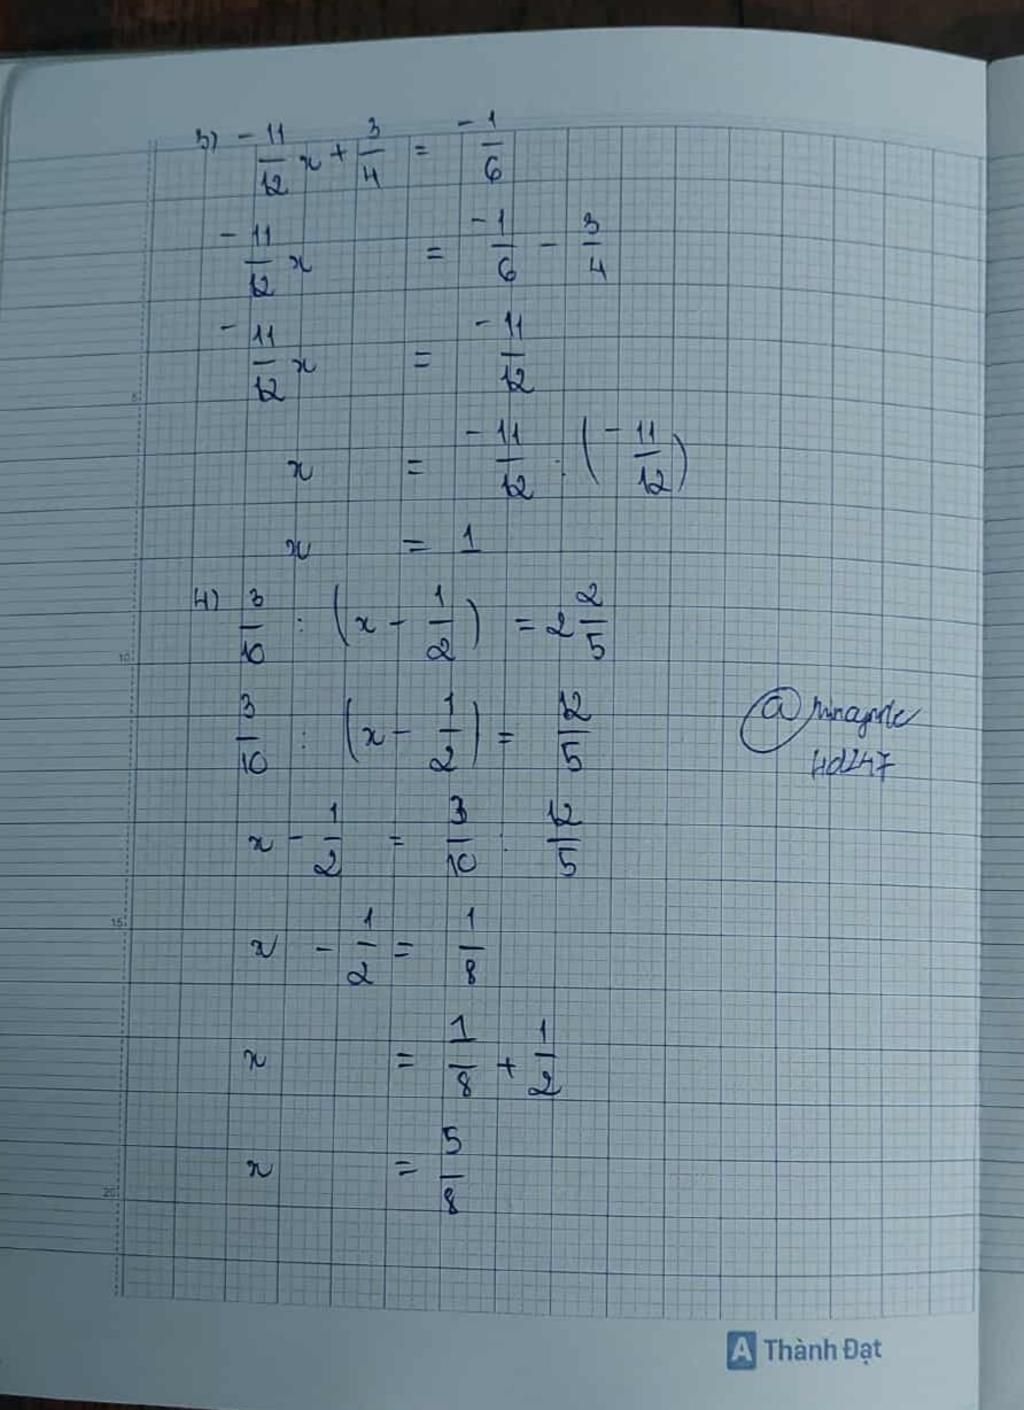 3) -11/12 x + 3/4 = -1/6
-11/12 x = -1/6 - 3/4
-11/12 x = -11/12
x = -11/12 : (-11/12)
x = 1
4) 3/10 : (x - 1/2) = 2 2/5
3/10 : (x - 1/2) = 12/5
x - 1/2 = 3/10 : 12/5
x - 1/2 = 1/8
x = 1/8 + 1/2
x = 5/8
5
10
15
20
A Thành Đạt